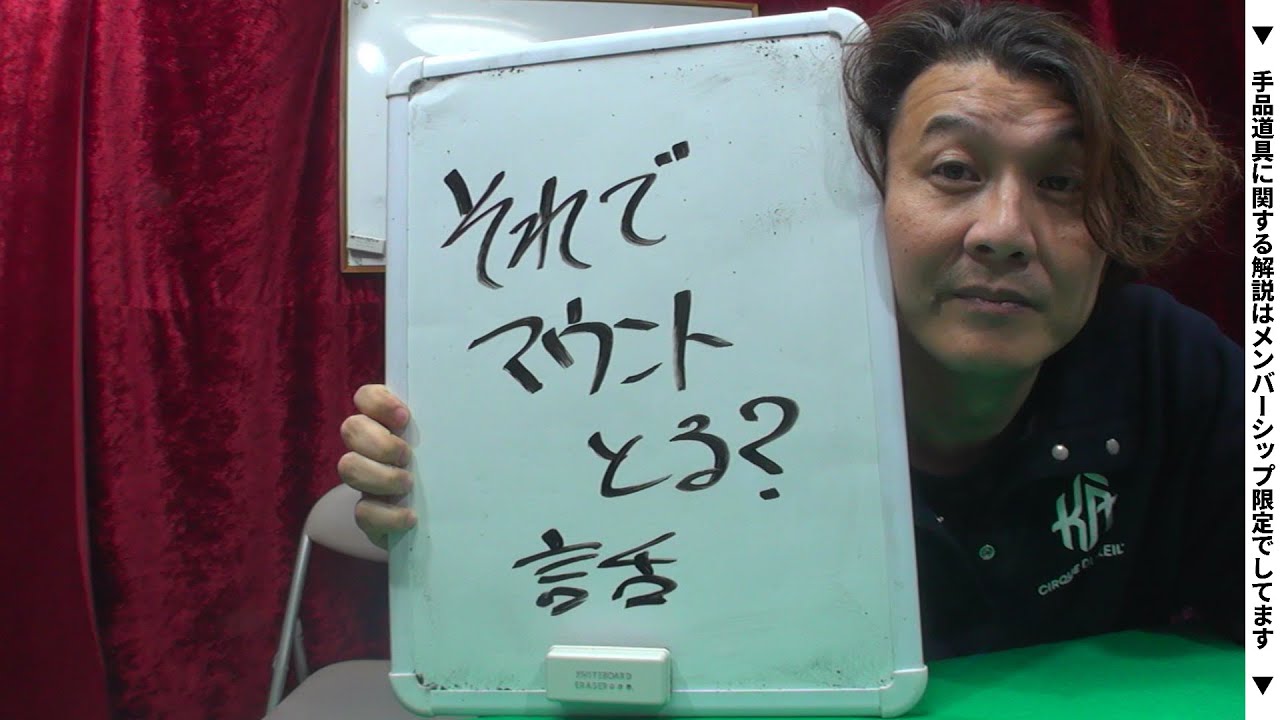 それで
マウント
とる?
話
KÀ
▼ 手品道具に関する解説はメンバーシップ限定でしてます ▼